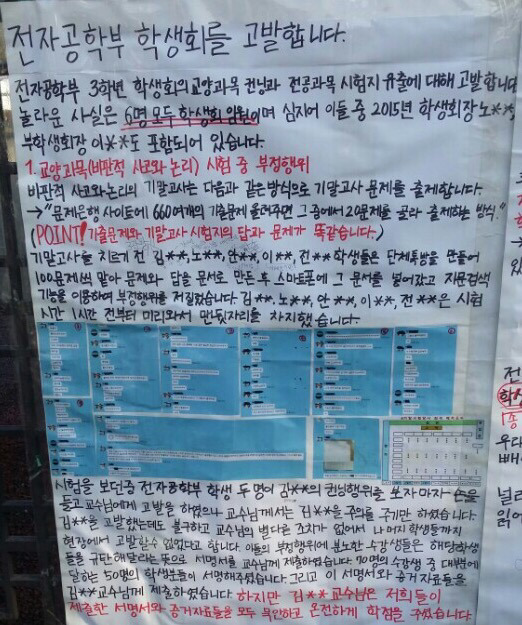 전자공학부 학생회를 고발합니다.
전자공학부 3학년 학생회의 교양과목 컨닝과 전공과목 시험지 유출에 대해 고발합니다
놀라운 사실은 6명 모두 학생회 임원이며 심지어 이들 중 2015년 학생회장 노**,
부학생회장 이**도 포함되어 있습니다.
1. 교양과목(비판적 사고와 논리) 시험 중 부정행위
비판적 사고와 논리의 기말고사는 다음과 같은 방식으로 기말고사 문제를 출제합니다.
→"문제은행 사이트에 660여개의 기출문제 올려주면 그 중에서 20문제를 골라 출제하는 방식."
(POINT! 기출문제와 기말고사 시험지의 답과 문제가 똑같습니다.)
기말고사를 치르기 전 김**, 노**, 안**, 이**, 전** 학생들은 단체톡방을 만들어
100문제씩 맡아 문제와 답을 문서로 만든 후 스마트폰에 그 문서를 넣어갔고 지문검색
기능을 이용하여 부정행위를 저질렀습니다. 김**, 노**, 안**, 이**, 전**은 시험
시간 1시간 전부터 미리와서 맨뒷자리를 차지했습니다.
시험을 보던중 전자공학부 학생 두명이 김**의 컨닝행위를 보자마자 손을
들고 교수님에게 고발을 하였으나 교수님께서는 김**을 주의를 주기만 하였습니다.
김**을 고발했는데도 불구하고 교수님의 별다른 조치가 없어서 나머지 학생들까지
현장에서 고발할 수 없었다고 합니다. 이들의 부정행위에 분노한 수강생들은 해당학생
들을 규탄해 달라는 뜻으로 서명서를 교수님께 제출하였습니다. 70명의 수강생 중 대부분에
달하는 50명의 학생분들이 서명해주셨습니다. 그리고 이 서명서와 증거자료들을
김**교수님께 제출하였습니다. 하지만 김**교수님은 저희들이
제출한 서명서와 증거자료들을 모두 묵인하고 온전하게 학점을 주셨습니다.
전
학생
1종
우대
빼
널리
읽어